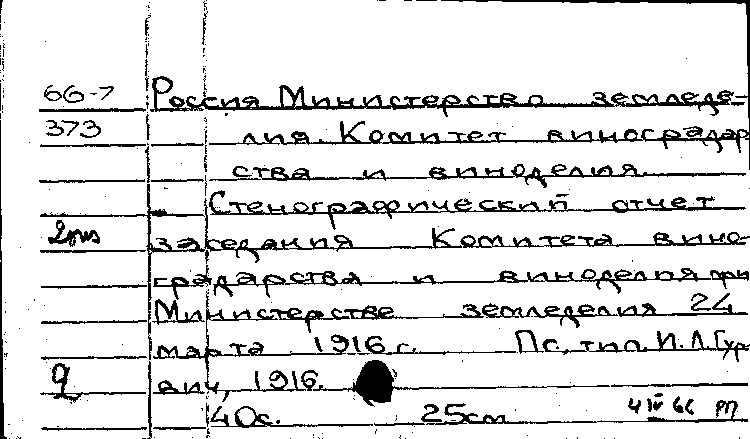 66-7 Россия Министерство земледе-
373 лия. Комитет виноградар
ства и виноделия.
Стенографический отчет
2 экз заседания Комитета вино-
градарства и виноделия при
Министерстве земледелия 24
марта 1916 г. Пг., тип. И. Л. Гур
9 вич, 1916.
40 с. 25 см 4 IV 66 РП